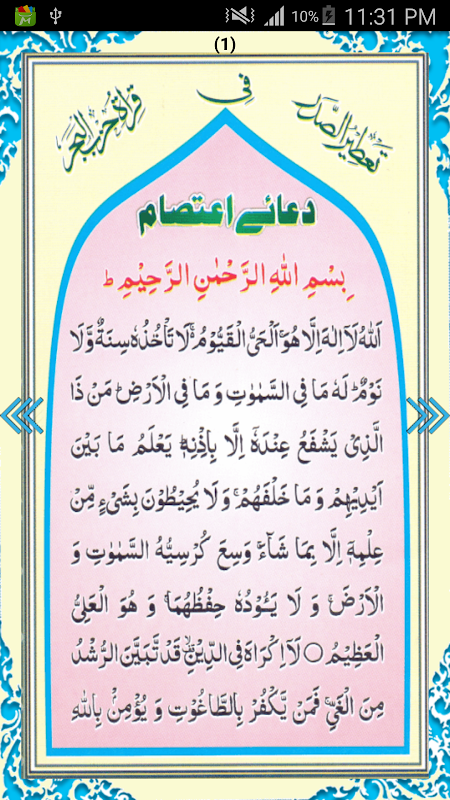 10% 11:31 PM
(1)
تعطیر الصدر فی قراءة حزب البحر
دعائے اعتصام
بِسْمِ اللهِ الرَّحْمٰنِ الرَّحِيْمِ ط
اَللهُ لَآ اِلٰهَ اِلَّا هُوَ ۚ اَلْحَیُّ الْقَیُّوْمُ ۚ لَا تَاْخُذُهٗ سِنَةٌ وَّلَا
نَوْمٌ ؕ لَهٗ مَا فِی السَّمٰوٰتِ وَ مَا فِی الْاَرْضِ ؕ مَنْ ذَا
الَّذِیْ یَشْفَعُ عِنْدَهٗۤ اِلَّا بِاِذْنِهٖ ؕ یَعْلَمُ مَا بَیْنَ
اَیْدِیْهِمْ وَ مَا خَلْفَهُمْ ۚ وَ لَا یُحِیْطُوْنَ بِشَیْءٍ مِّنْ
عِلْمِهٖۤ اِلَّا بِمَا شَآءَ ۚ وَسِعَ كُرْسِیُّهُ السَّمٰوٰتِ وَ
الْاَرْضَ ۚ وَ لَا یَـُٔوْدُهٗ حِفْظُهُمَا ۚ وَ هُوَ الْعَلِیُّ
الْعَظِیْمُ ○ لَاۤ اِكْرَاهَ فِی الدِّیْنِ ۙ قَدْ تَّبَیَّنَ الرُّشْدُ
مِنَ الْغَیِّ ۚ فَمَنْ یَّكْفُرْ بِالطَّاغُوْتِ وَ یُؤْمِنْۢ بِاللهِ